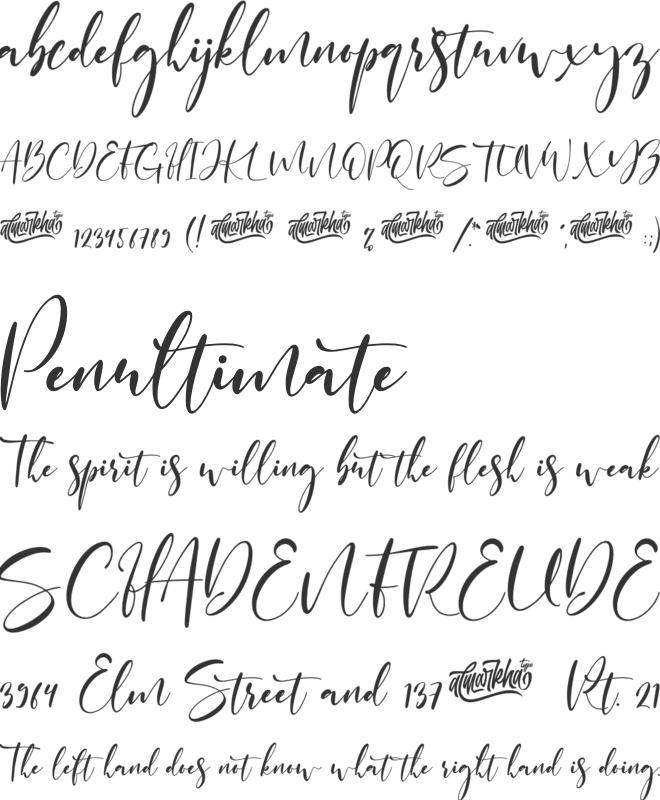 abcdefghijklmnopqrstuvwxyz
ABCDEFGHIJKLMNOPQRSTUVWXYZ
almarkha type 123456789 (! almarkha type almarkha type % almarkha type /:* almarkha type ; almarkha type :;)
Penultimate
The spirit is willing but the flesh is weak
SCHADENFREUDE
3964 Elm Street and 137 almarkha type Rt. 21
The left hand does not know what the right hand is doing.